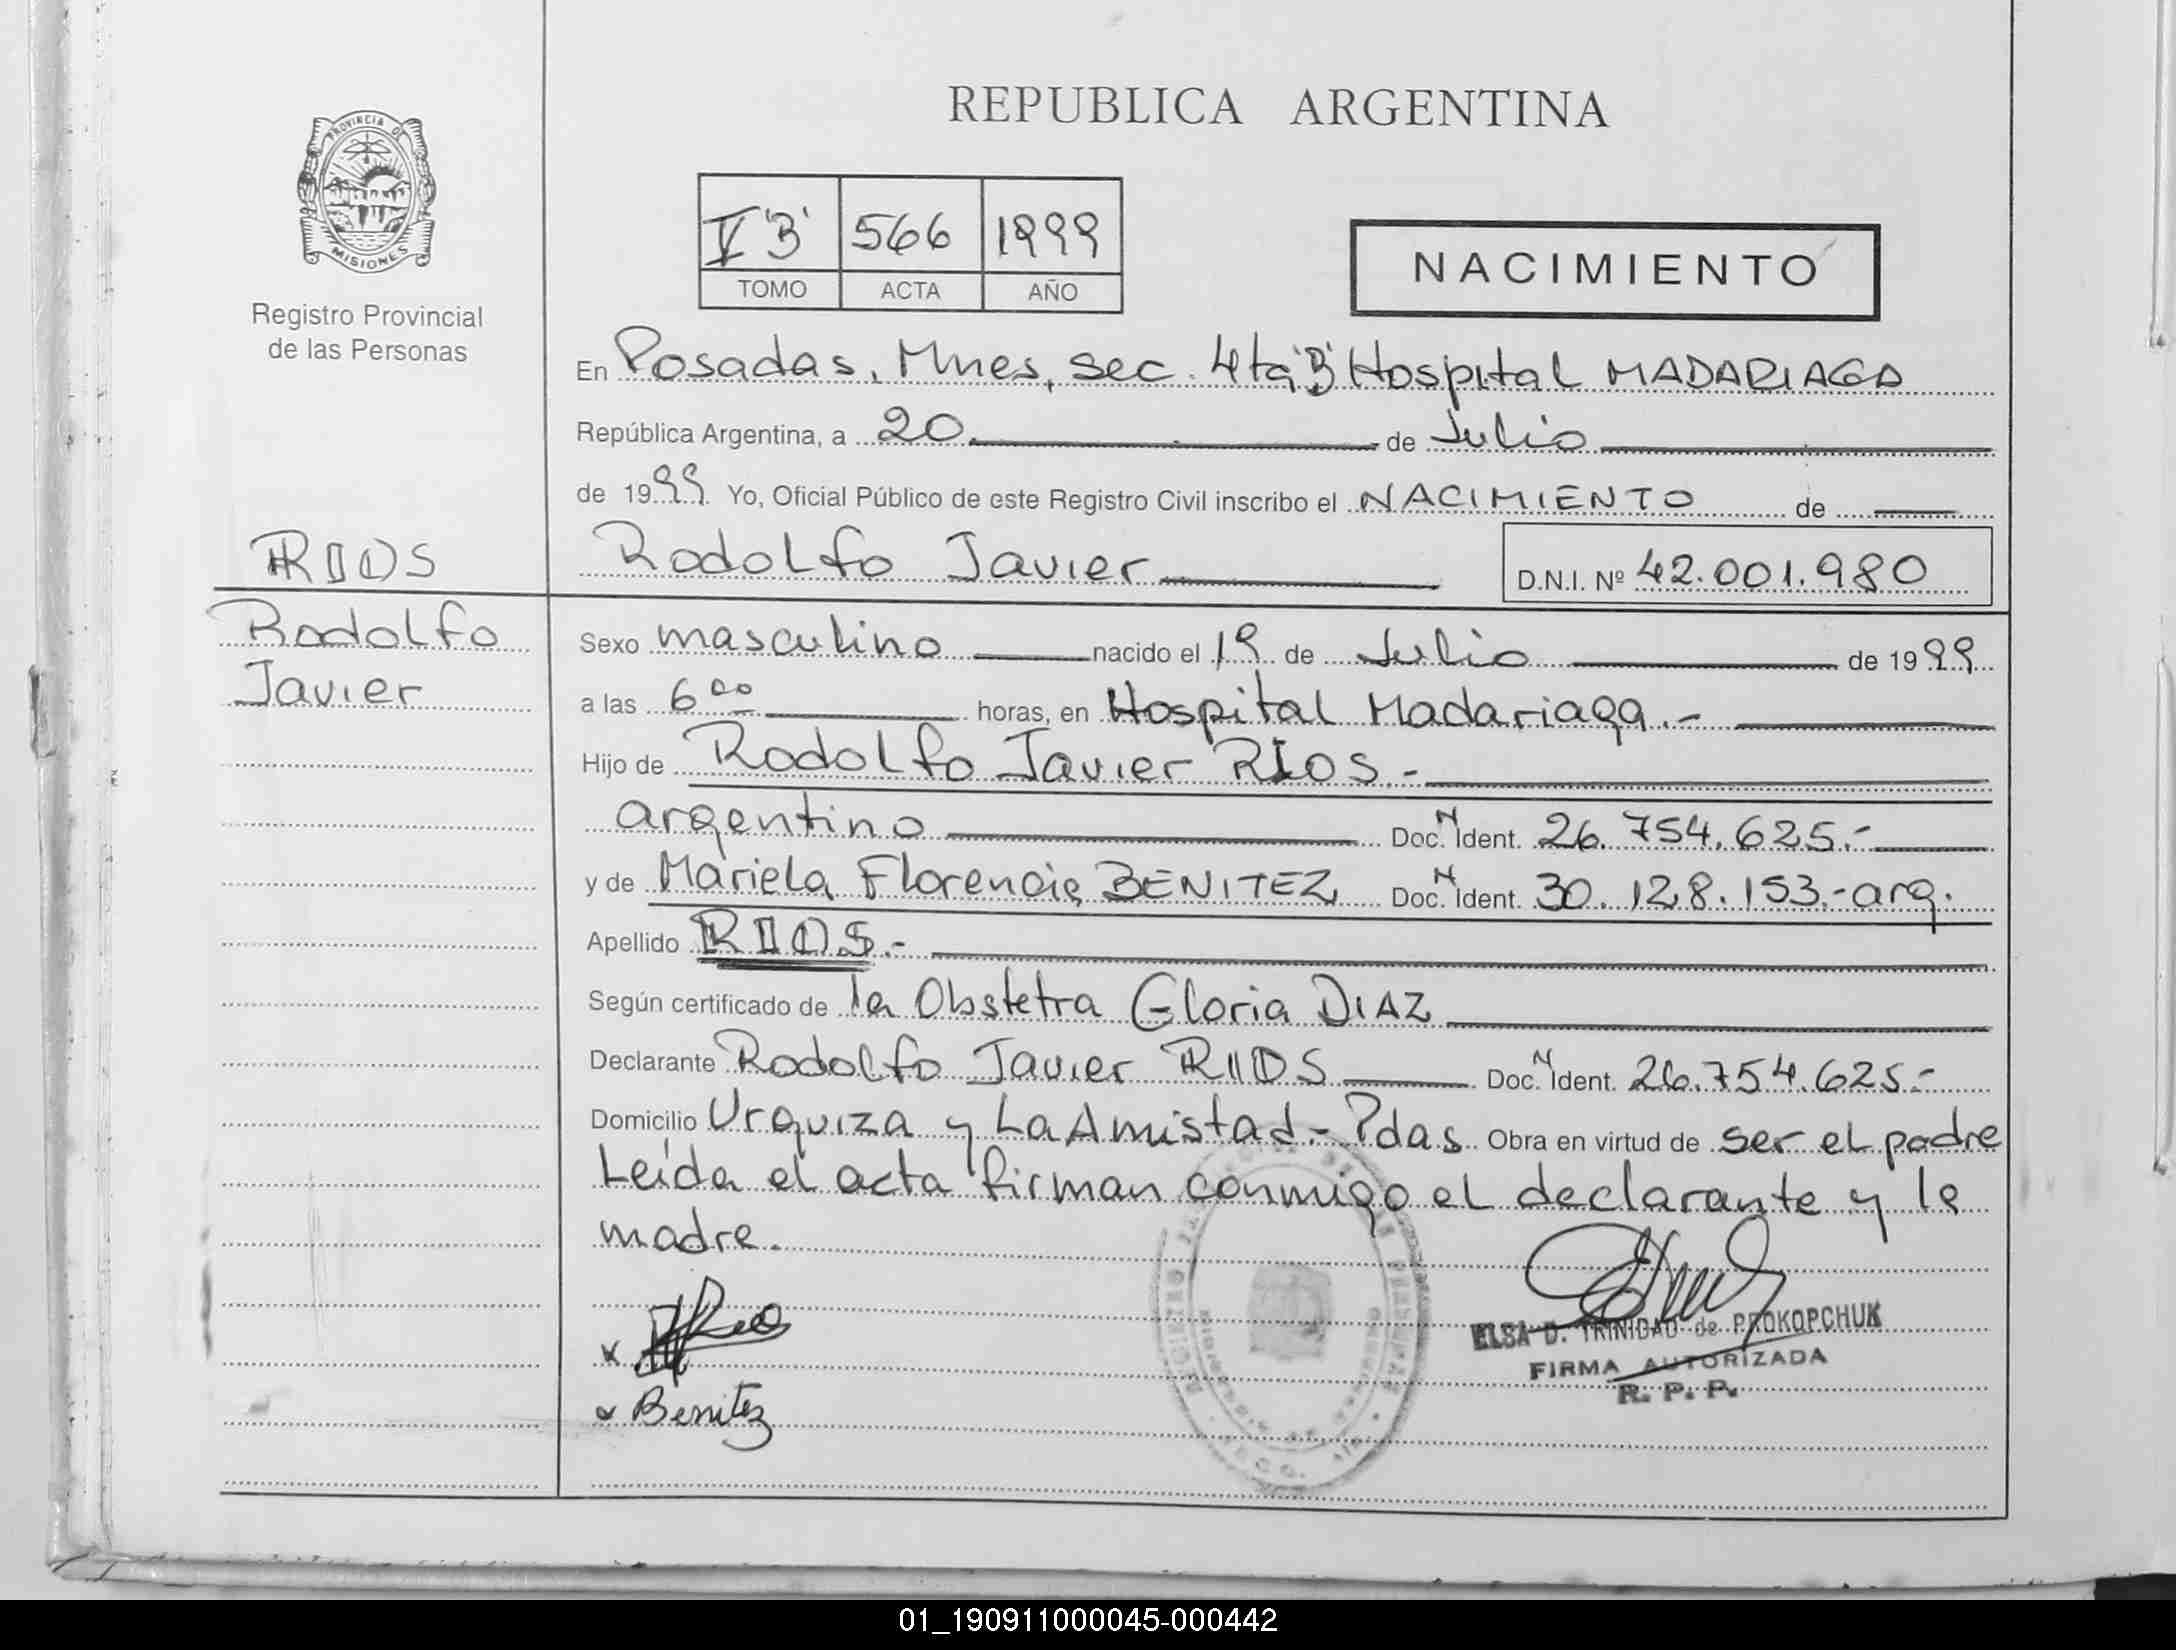 REPUBLICA ARGENTINA
PROVINCIA DE
MISIONES
Registro Provincial
de las Personas
V "B" 566 1999
TOMO ACTA AÑO
NACIMIENTO
En Posadas, Mnes, sec. 4ta "B" Hospital MADARIAGA
República Argentina, a 20 de Julio
de 1999 Yo, Oficial Público de este Registro Civil inscribo el NACIMIENTO de
RIOS
Rodolfo Javier D.N.I. Nº 42.001.980
Rodolfo
Javier
Sexo masculino nacido el 19 de Julio de 1999
a las 6 00 horas, en Hospital Madariaga.-
Hijo de Rodolfo Javier RIOS.-
argentino Doc. N Ident. 26.754.625.-
y de Mariela Florencia BENITEZ Doc. N Ident. 30.128.153.-arg.
Apellido RIOS.-
Según certificado de la Obstetra Gloria DIAZ
Declarante Rodolfo Javier RIOS Doc. N Ident. 26.754.625.-
Domicilio Urquiza y La Amistad.- Pdas Obra en virtud de ser el padre
Leída el acta firman conmigo el declarante y la
madre.
x
x Benitez
ELSA D. TRINIDAD de PROKOPCHUK
FIRMA AUTORIZADA
R. P. P.
01_190911000045-000442